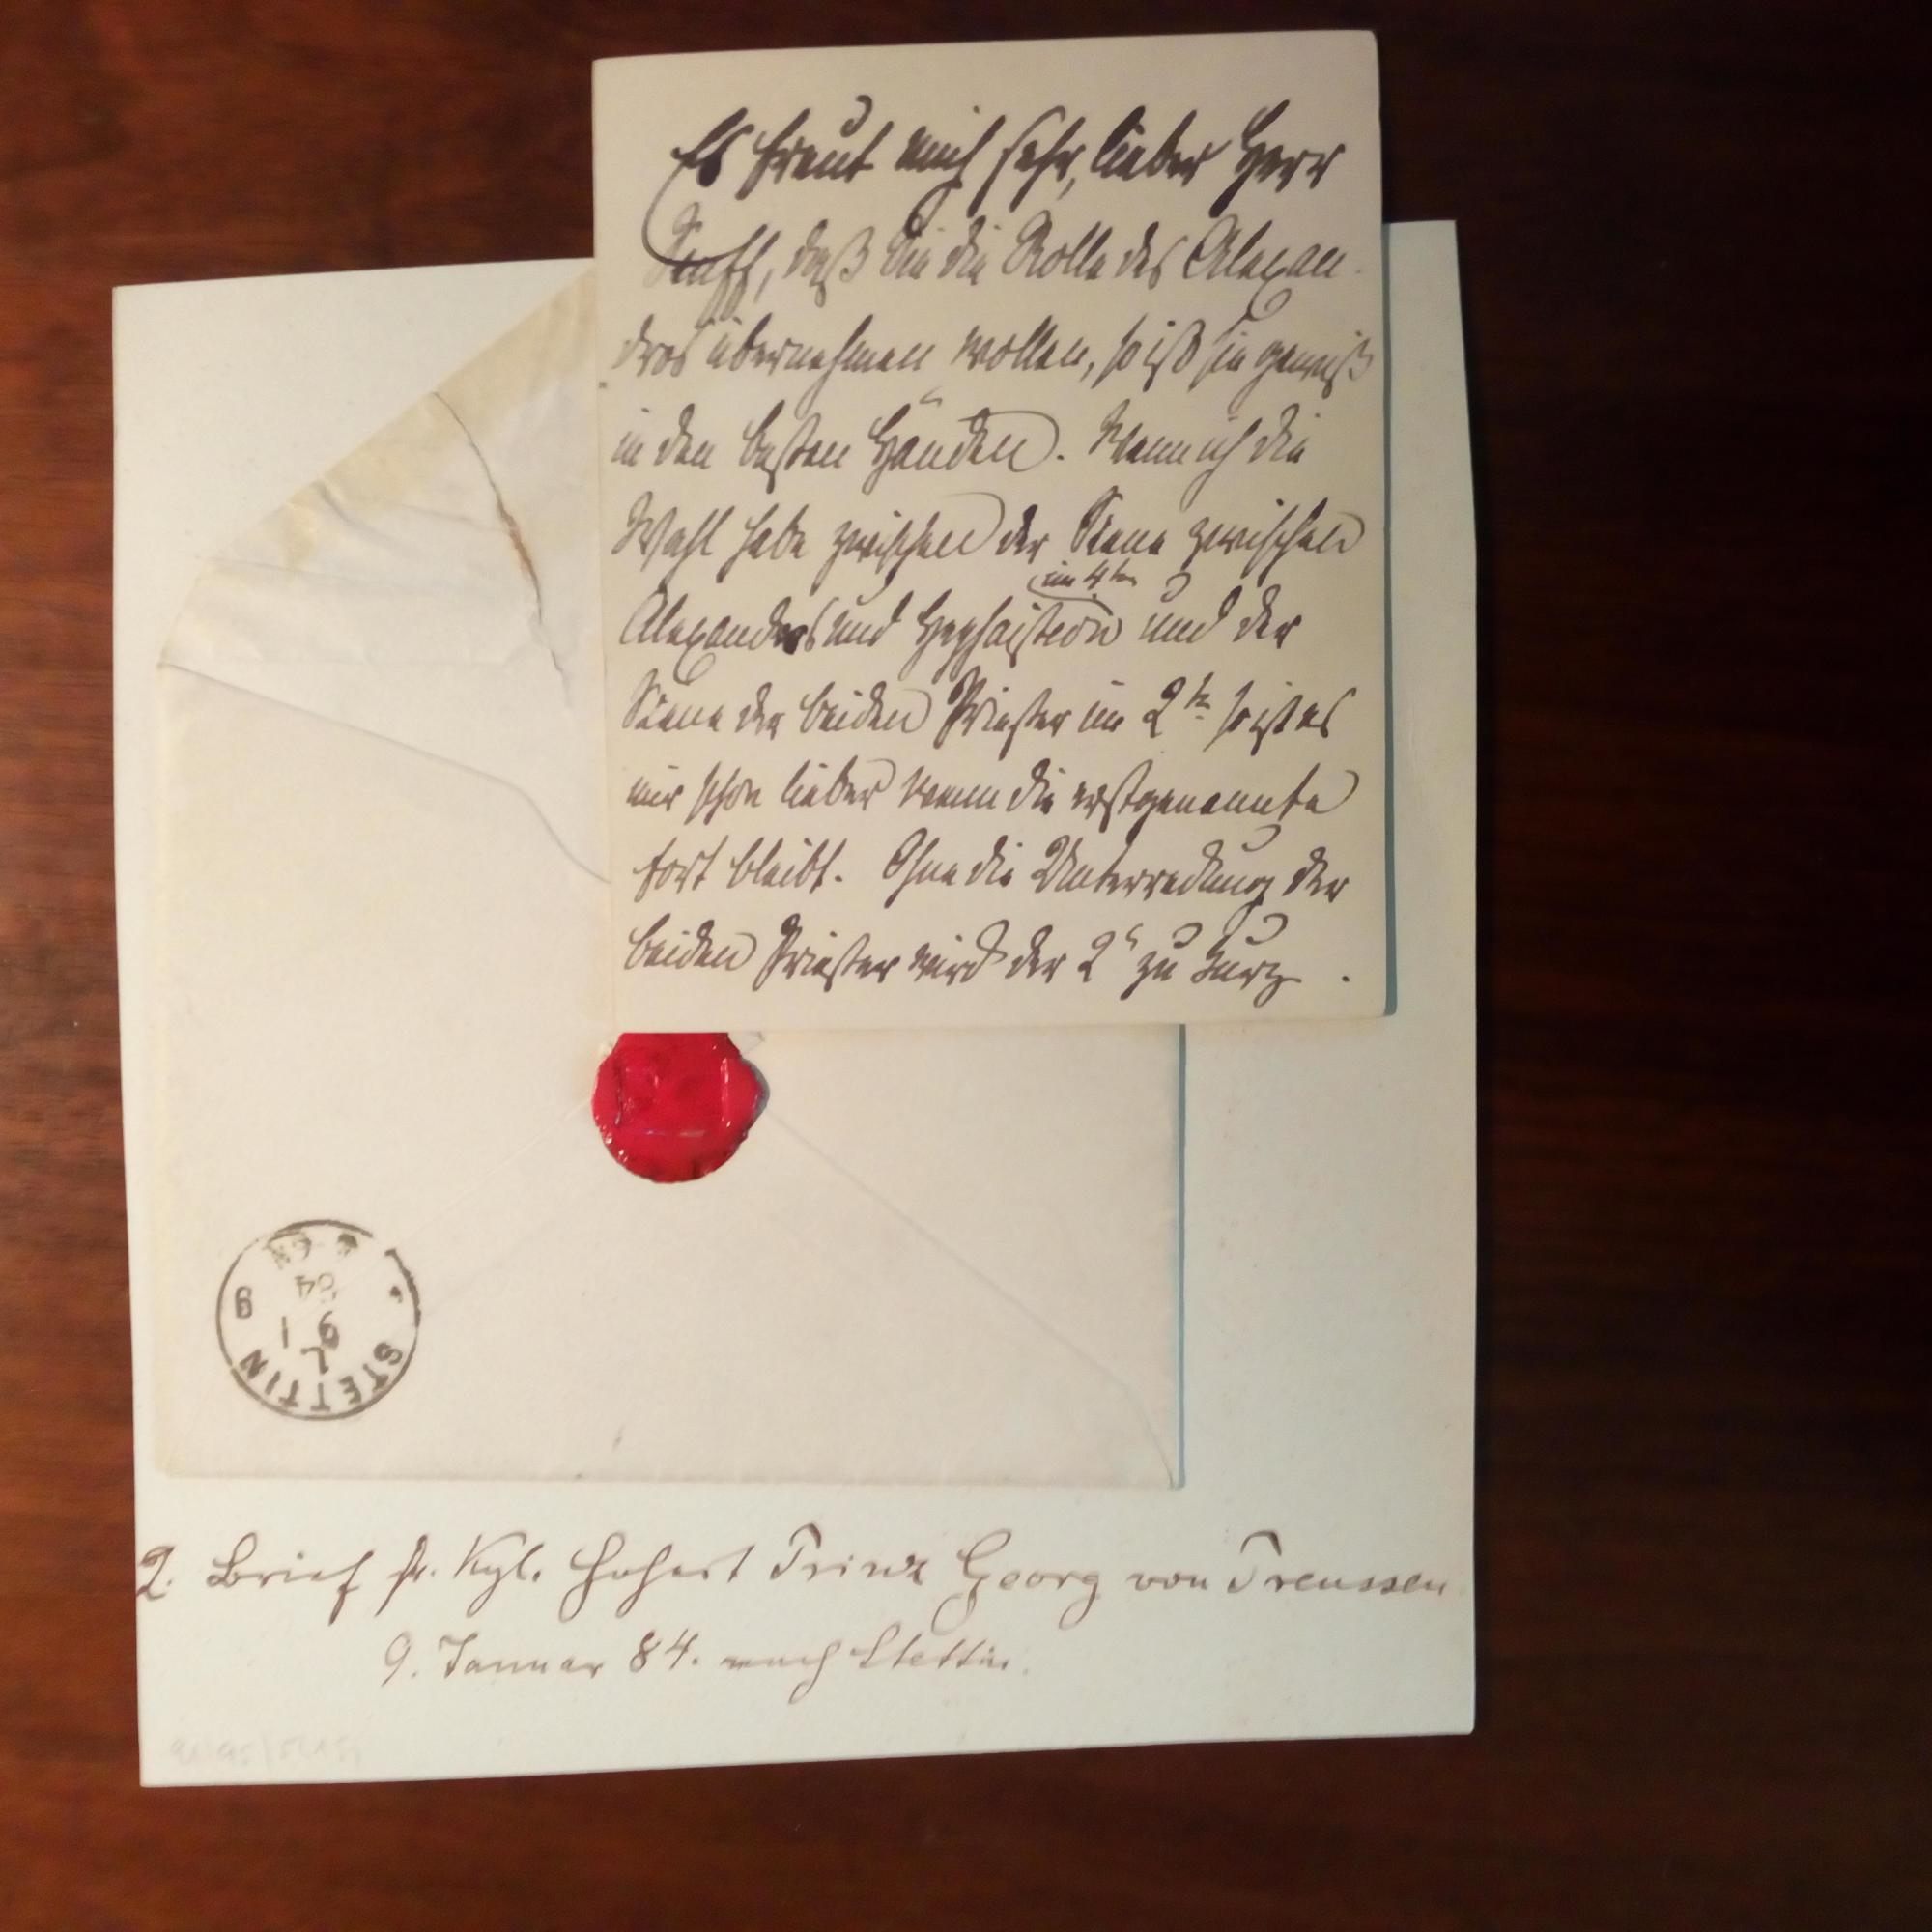 Es freut mich sehr, lieber Herr
daß Sie die Rolle des Alexan-
dros übernehmen wollen, so ist sie gewiß
in den besten Händen. Wenn ich die
Wahl habe zwischen der Scene zwischen
im 4ten
Alexandros und Hephaistion und der
Scene der beiden Priester im 2ten so ist es
mir schon lieber wenn die erstgenannte
fort bleibt. Ohne die Unterredung der
beiden Priester wird der 2te zu kurz.
STETTIN
9 1
84
2. Brief sr. Kgl. Hoheit Prinz Georg von Preussen
9. Januar 84. nach Stettin.